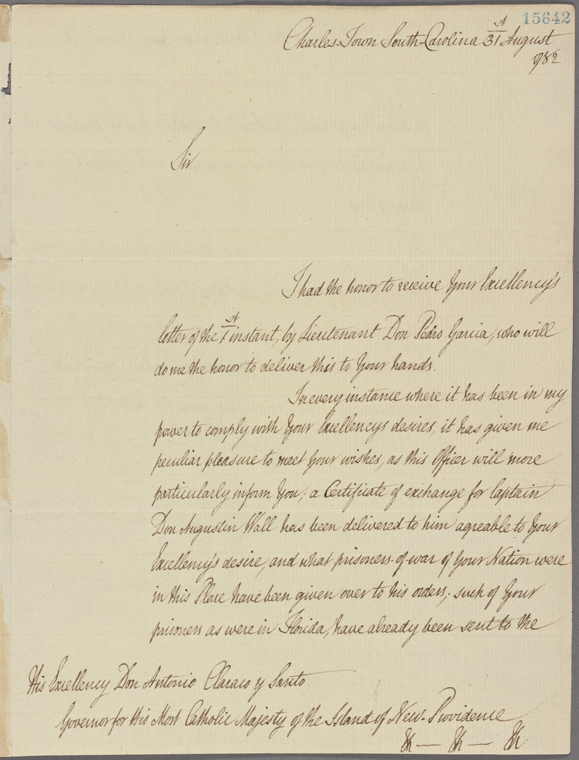 15642
Charles Town South Carolina 31st August
1782
Sir
I had the honor to receive Your Excellency's
letter of the 1st instant, by Lieutenant Don Pedro Garcia, who will
do me the honor to deliver this to Your hands.
In every instance where it has been in my
power to comply with Your Excellency's desires, it has given me
peculiar pleasure to meet Your wishes, as this Officer will more
particularly inform You; a Certificate of exchange for Captain
Don Augustin Wall has been delivered to him agreable to Your
Excellency's desire, and what prisoners of war of Your Nation were
in this Place have been given over to his orders; such of Your
prisoners as were in Florida, have already been sent to the
His Excellency Don Antonio Claraco y Santo
Governor for His Most Catholic Majesty of the Island of New Providence
&c — &c — &c